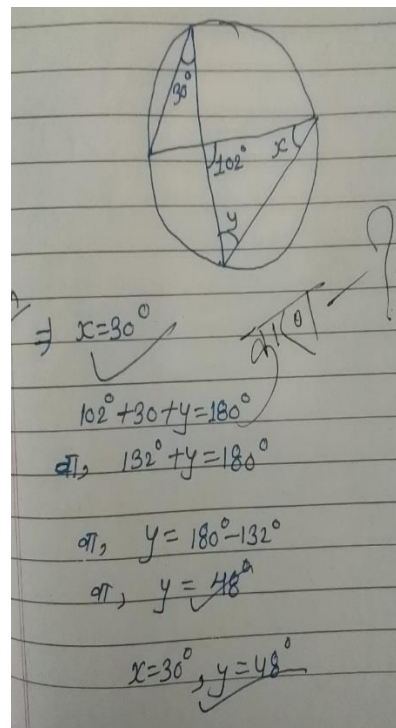 30°
102°
x
y
⇒ x=30°
?
102°+30+y=180°
বা, 132°+y=180°
বা, y=180°-132°
বা, y=48°
x=30°, y=48°